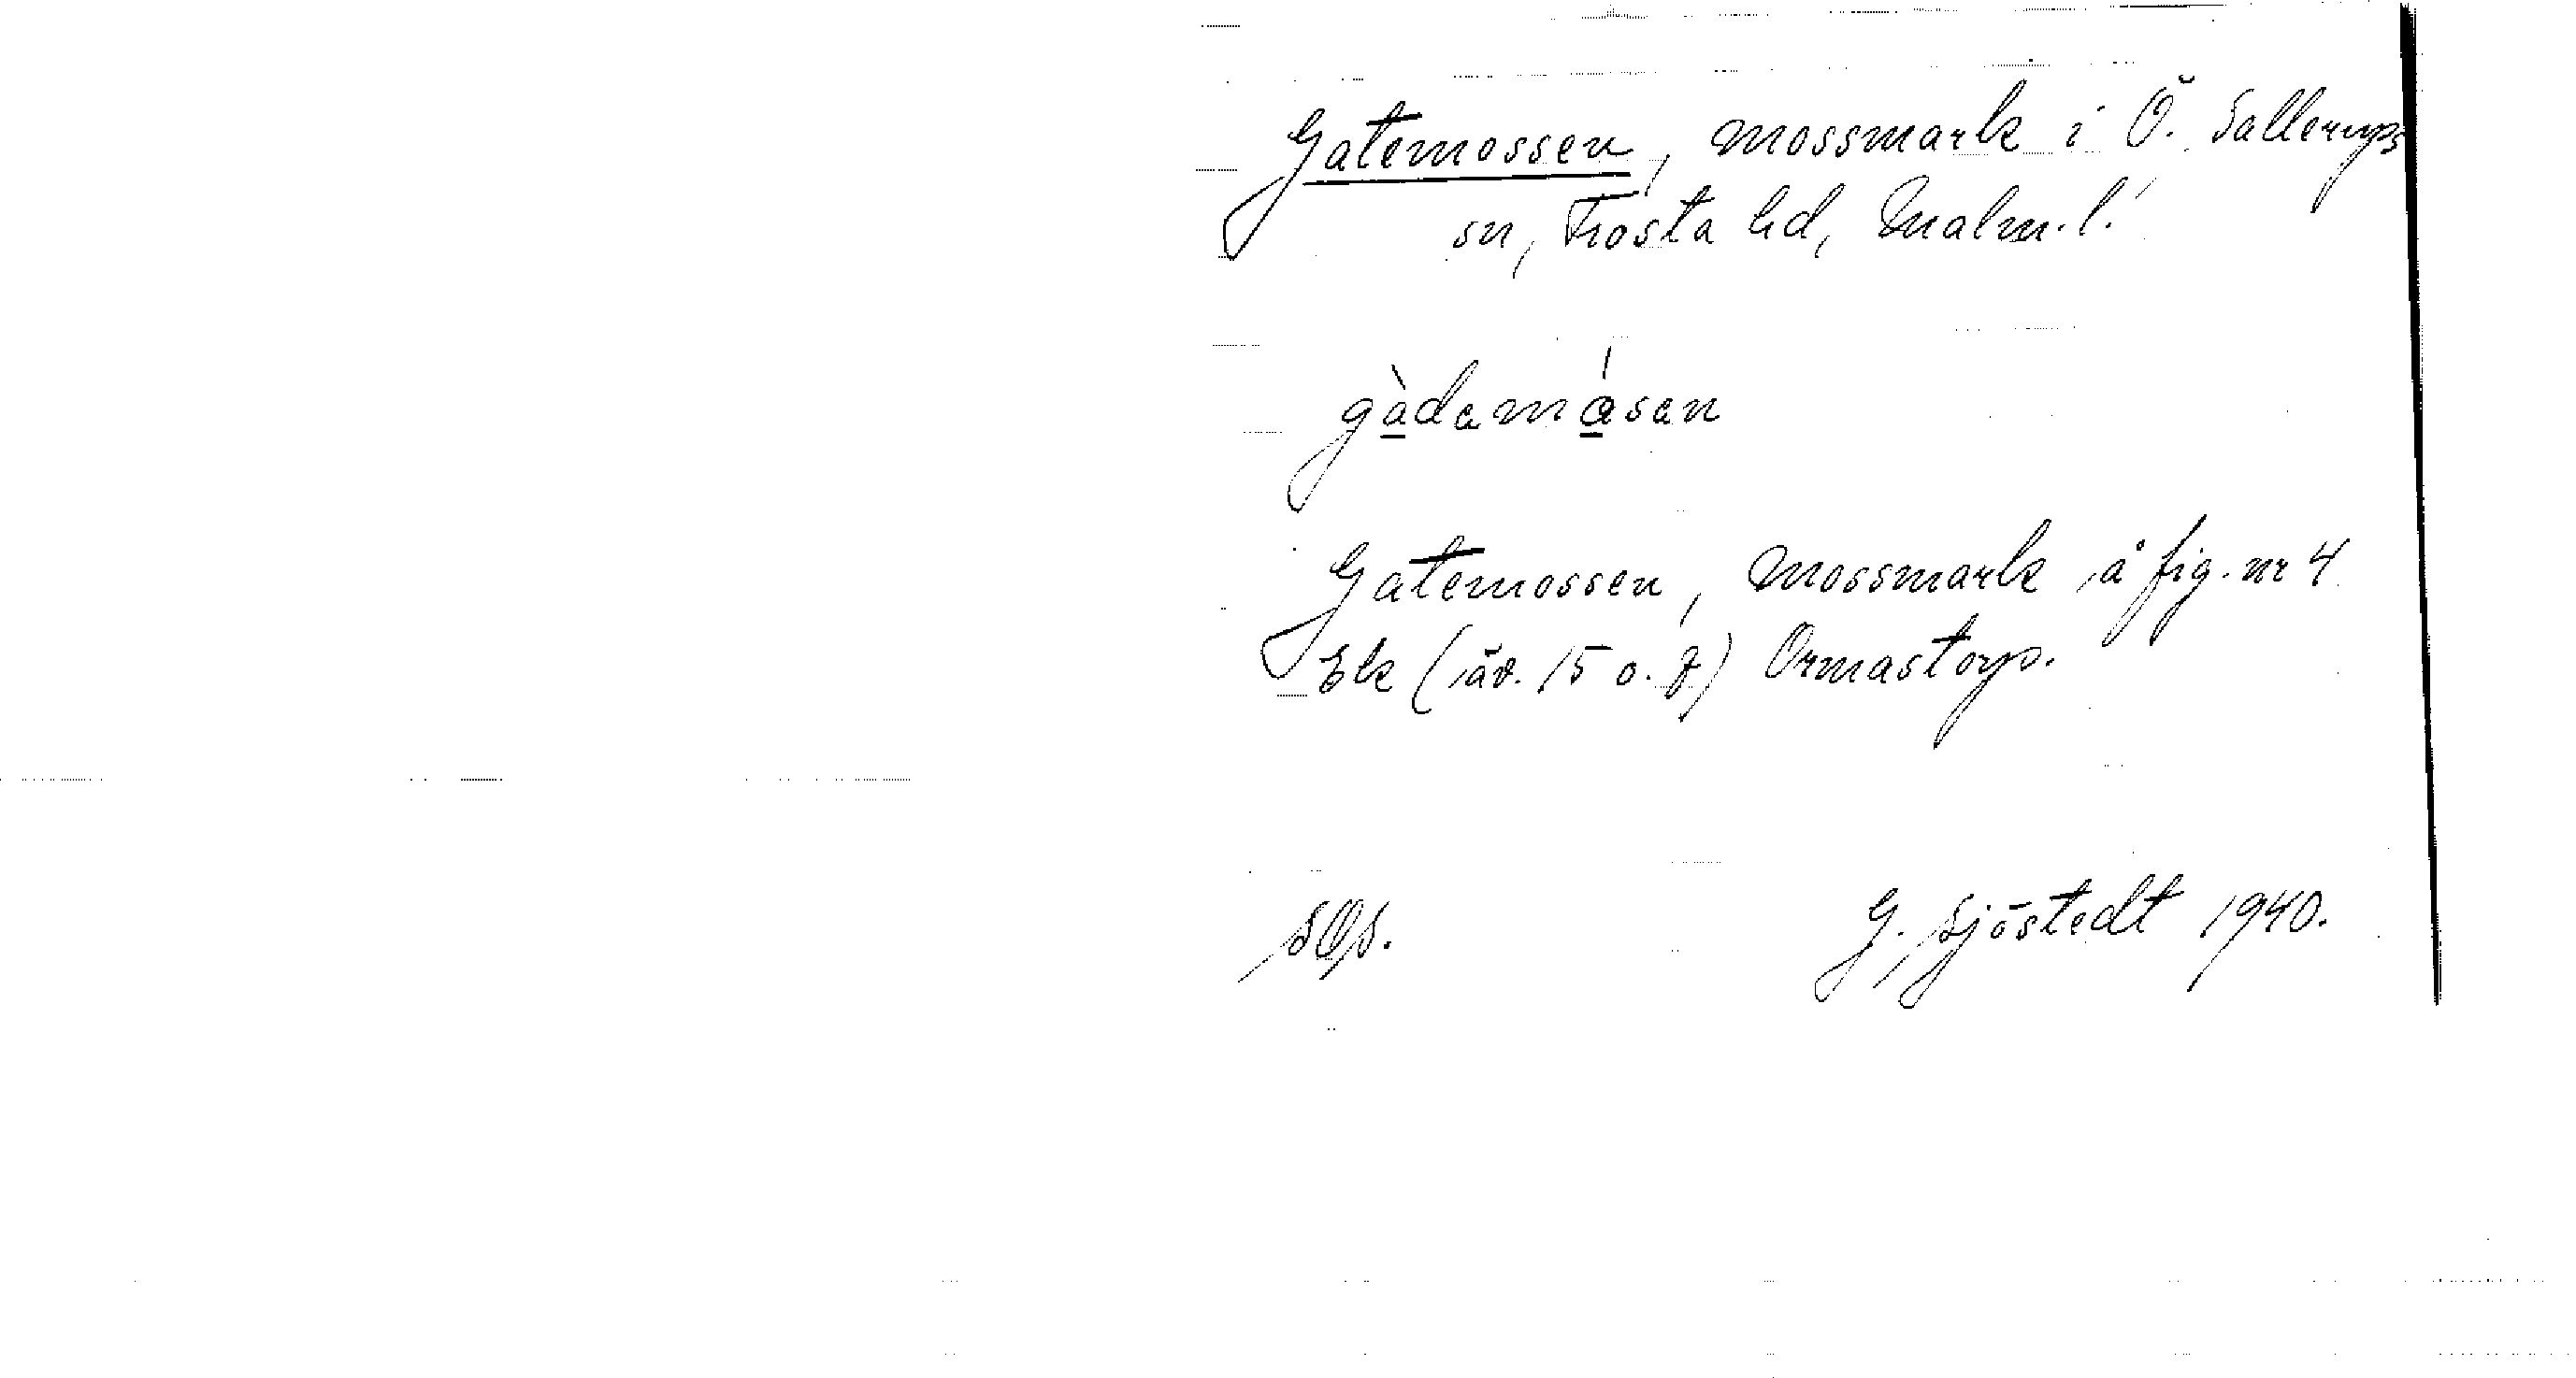 Gatemossen, mossmark i Ö. Sallerups
sn, Frosta hd, Malm. l.
gàdamásan
Gatemossen, mossmark å fig. nr 4
Ek (äv. 15 o. 7) Ormastorp.
SOS.
G. Sjöstedt 1940.